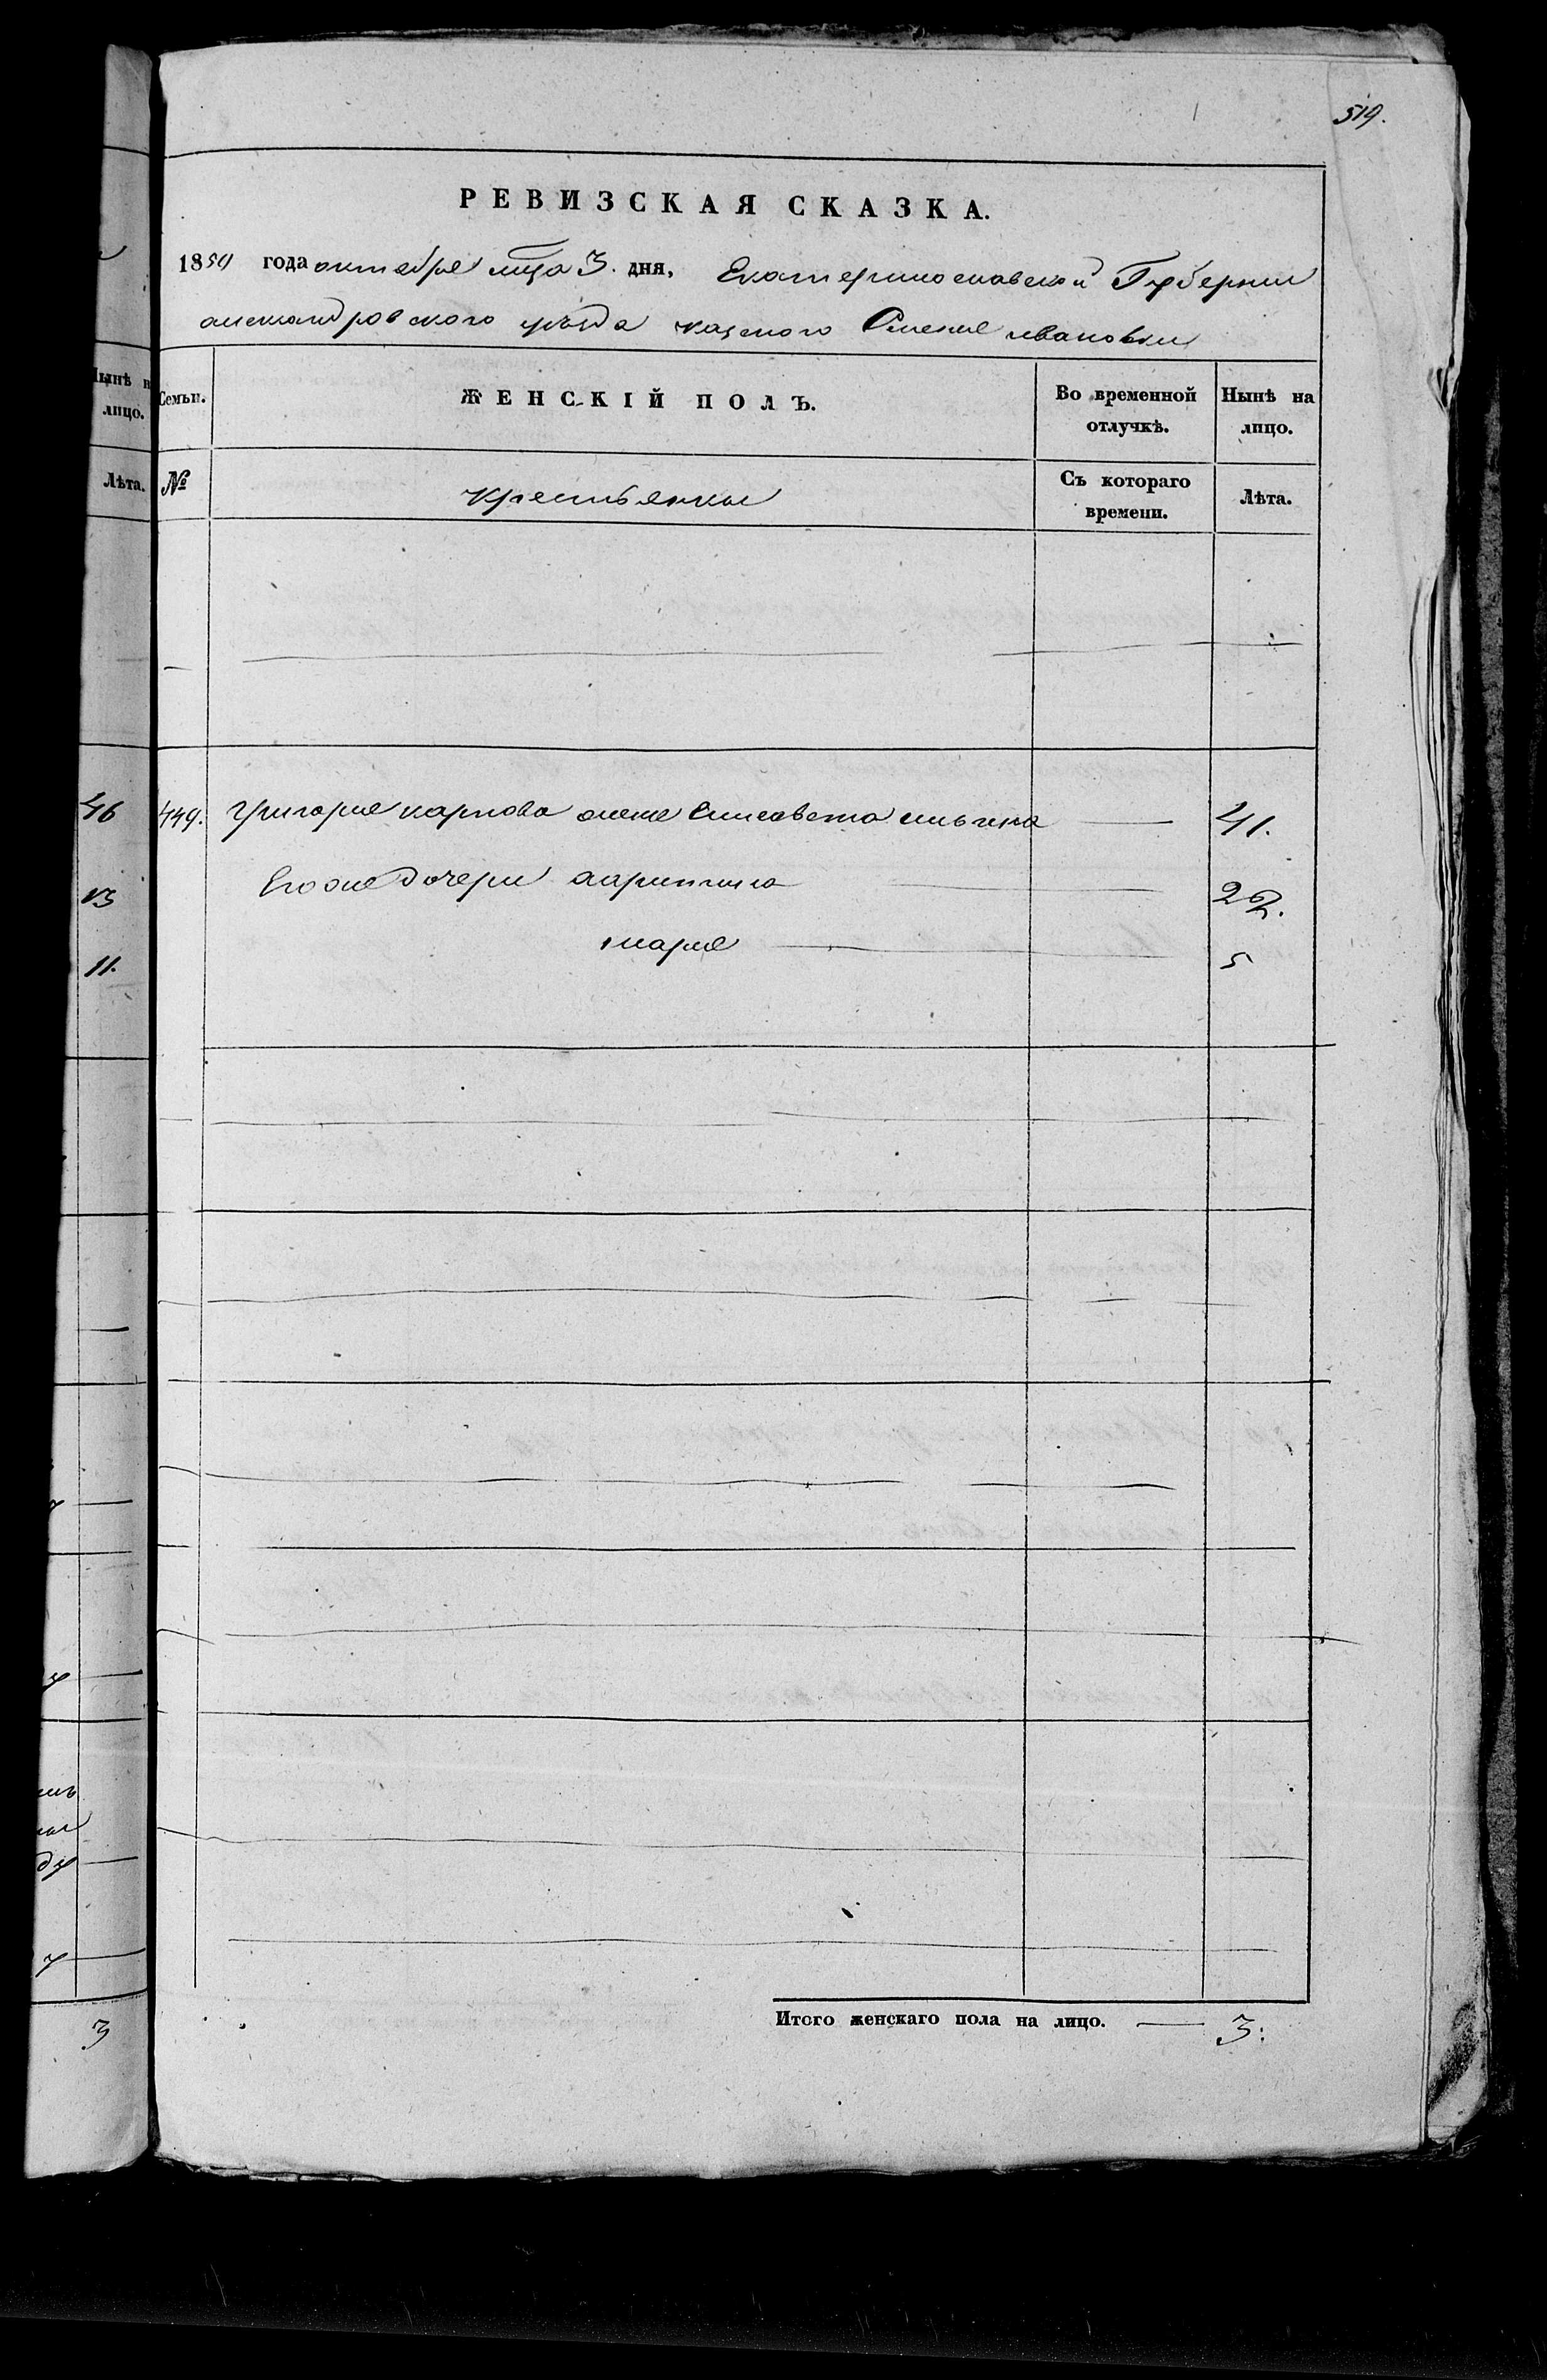 519.
РЕВИЗСКАЯ СКАЗКА.
1850 года октября мца 3. дня, Екатеринославской Губернии
александровского уезда казеного Селения ивановки
Нынѣ н
лицо.
Лѣта.
Семьи.
ЖЕНСКІЙ ПОЛЪ.
Во временной отлучкѣ.
Нынѣ на лицо.
№
крестьянки
Съ котораго времени.
Лѣта.
46
449. Григория карпова жена Елисавета ильина — 41.
13
Его же дочери — 22.
11.
мария — 5
3
Итого женскаго пола на лицо. — 3: